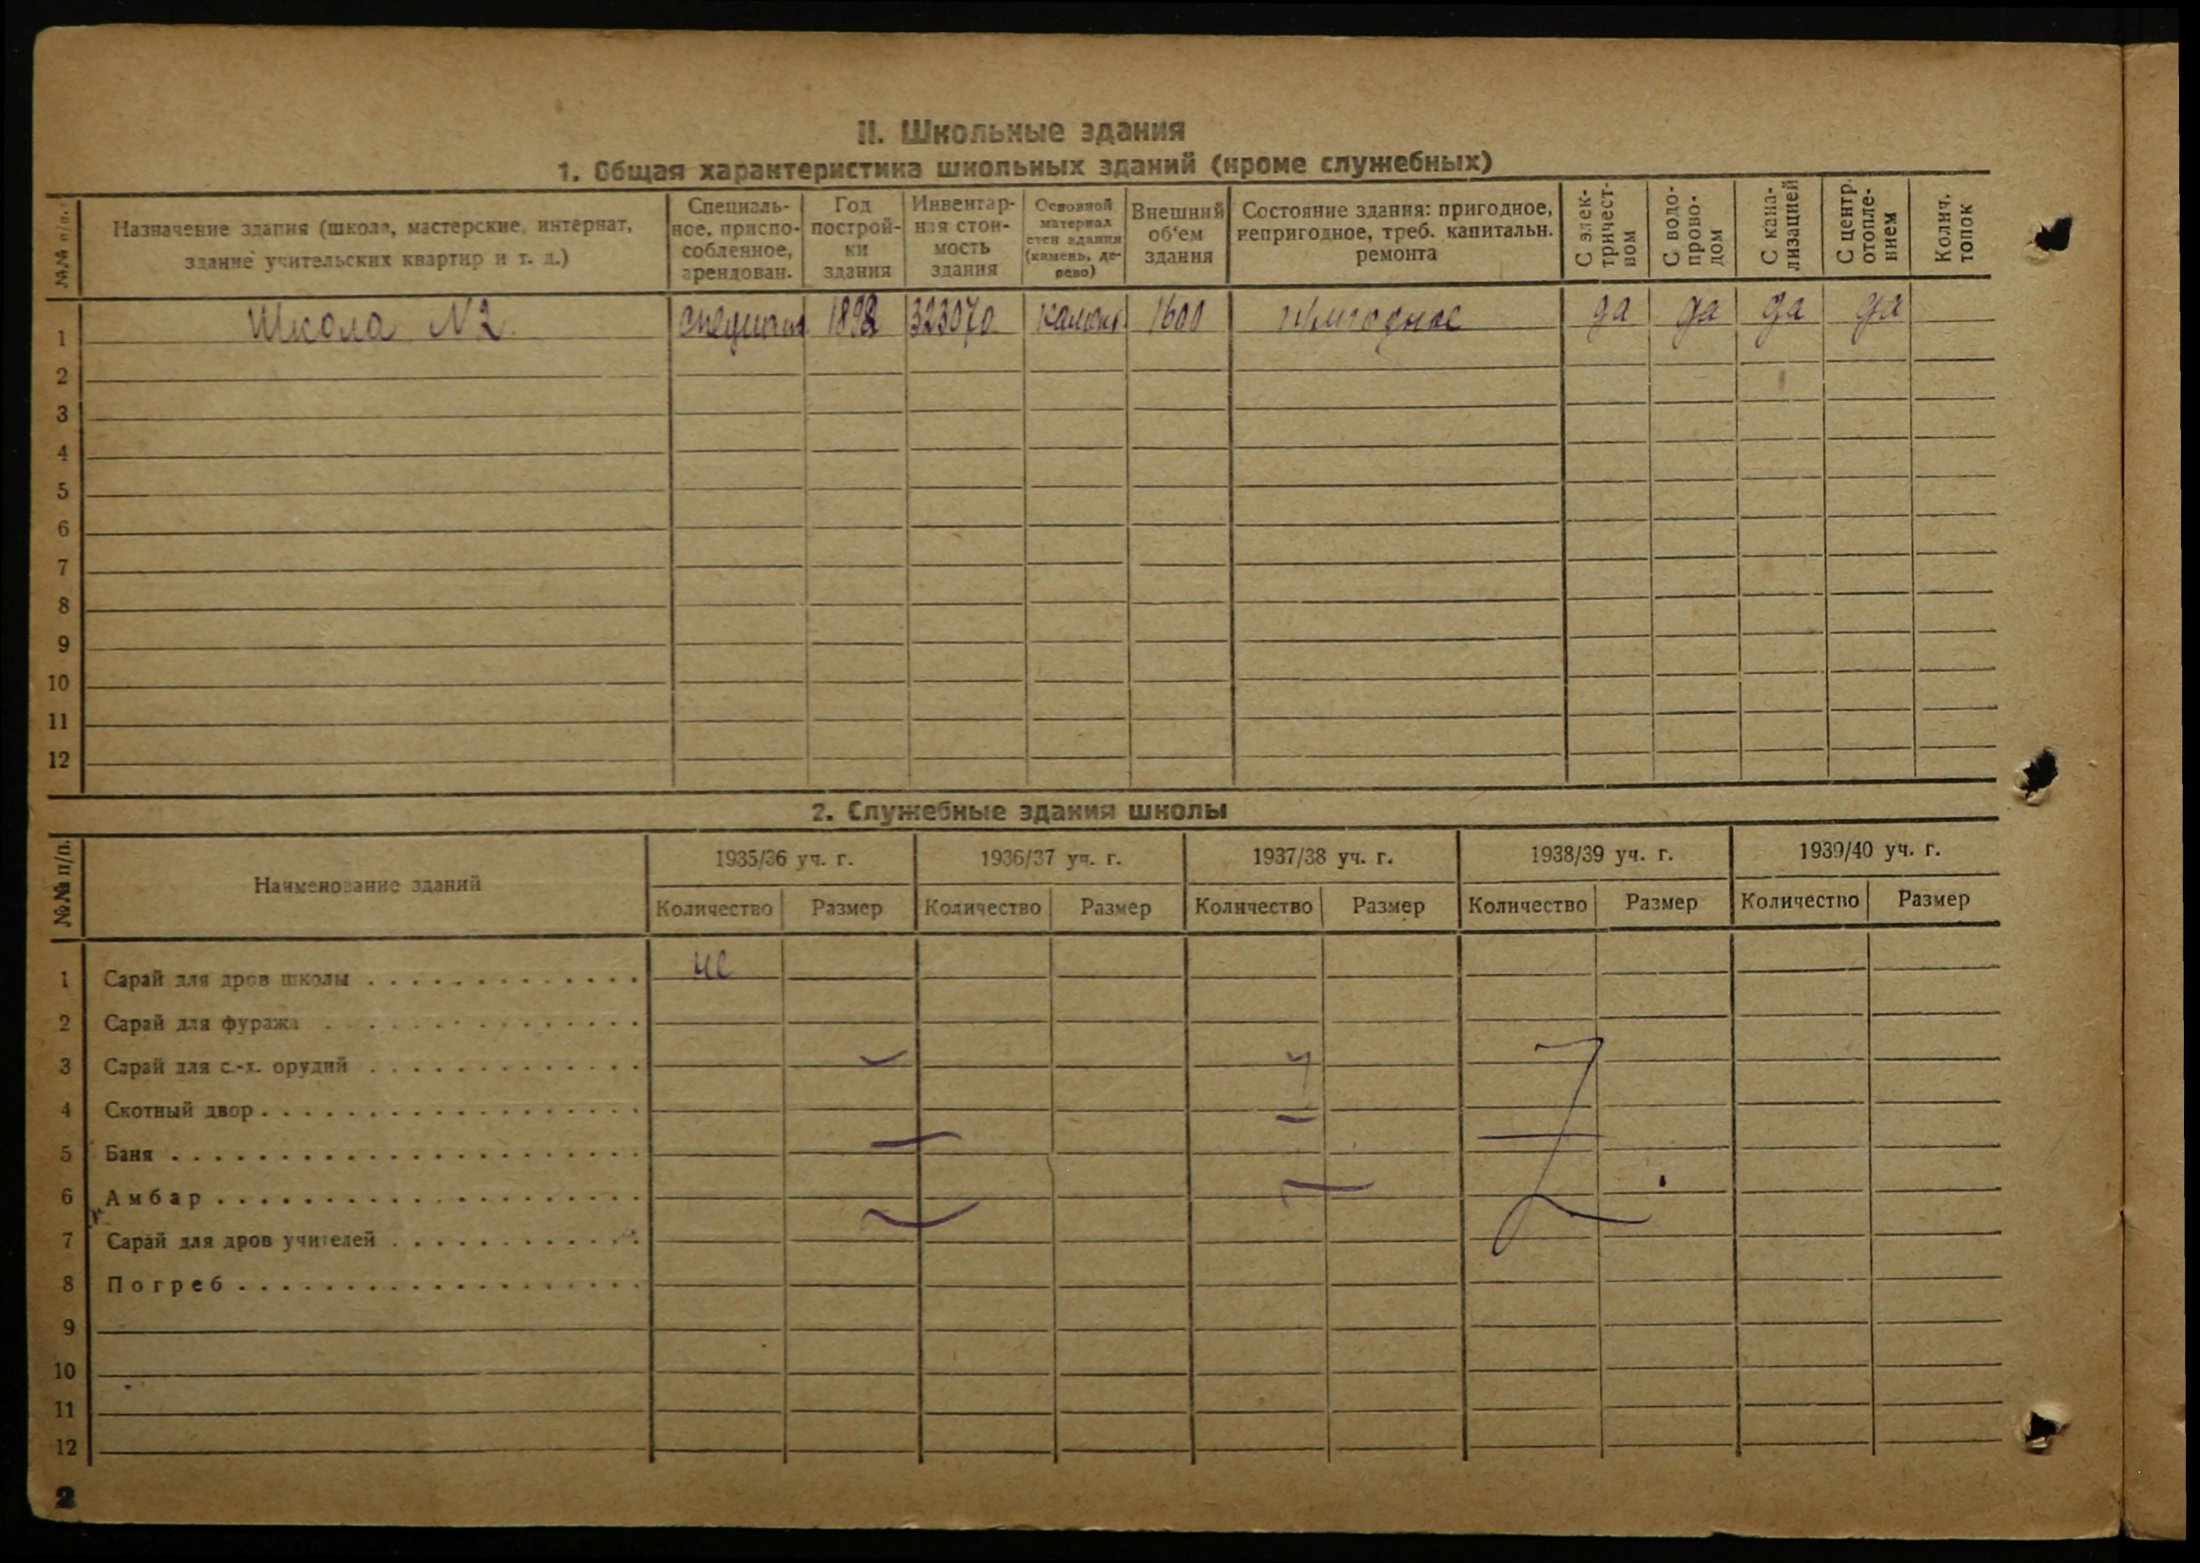 II. Школьные здания
1. Общая характеристика школьных зданий (кроме служебных)
№№ п/п.
Назначение здания (школа, мастерские, интернат,
здание учительских квартир и т. д.)
Специаль-
ное, приспо-
собленное,
арендован.
Год
построй-
ки
здания
Инвентар-
ная стои-
мость
здания
Основной
материал
стен здания
(камень, де-
рево)
Внешний
об'ем
здания
Состояние здания: пригодное,
непригодное, треб. капитальн.
ремонта
С элек-
тричест-
вом
С водо-
прово-
дом
С кана-
лизацией
С центр.
отопле-
нием
Колич.
топок
1 Школа N2 1898 323070 1600 пригодное да да да да
2
3
4
5
6
7
8
9
10
11
12
2. Служебные здания школы
№№ п/п.
Наименование зданий
1935/36 уч. г. 1936/37 уч. г. 1937/38 уч. г. 1938/39 уч. г. 1939/40 уч. г.
Количество Размер Количество Размер Количество Размер Количество Размер Количество Размер
1 Сарай для дров школы . . . . . . . . . . . . . не
2 Сарай для фуража . . . . . . . . . . . . . .
3 Сарай для с.-х. орудий . . . . . . . . . . . . .
4 Скотный двор . . . . . . . . . . . . . . . . .
5 Баня . . . . . . . . . . . . . . . . . . . . .
6 Амбар . . . . . . . . . . . . . . . . . . .
7 Сарай для дров учителей . . . . . . . . . . . .
8 Погреб . . . . . . . . . . . . . . . . . .
9
10
11
12
2